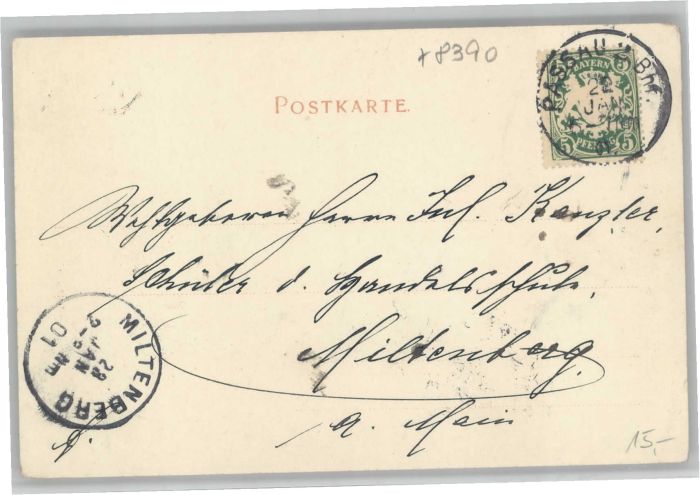 +8390
POSTKARTE.
BAYERN
5 PFENNIG 5
PASSAU 2 Bhf.
22
JAN
Wohlgeboren Herrn Jul. Kanzler,
Schüler d. Handelsschule,
Miltenberg
a. Main
MILTENBERG
JAN
01
15,-